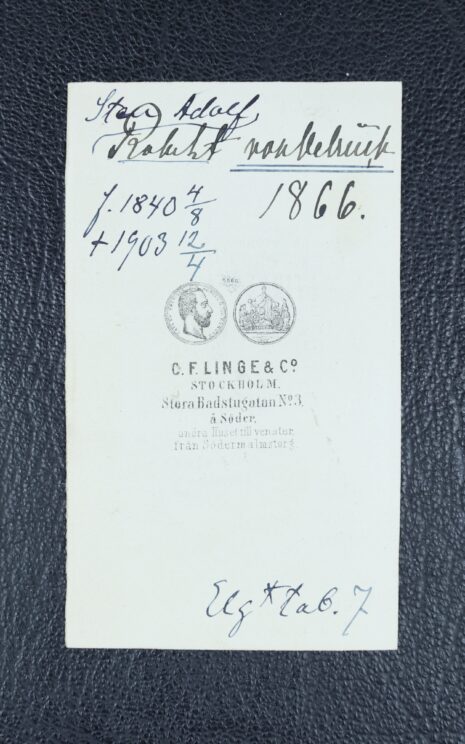 Sten Adolf
Robert von
1866.
f. 1840 4/8
+ 1903 12/4
1866
C. F. LINGE & Cº
STOCKHOLM.
Stora Badstugatan Nº 3.
å Söder,
andra Huset till venster
från Södermalmstorg.
Elg* tab. 7